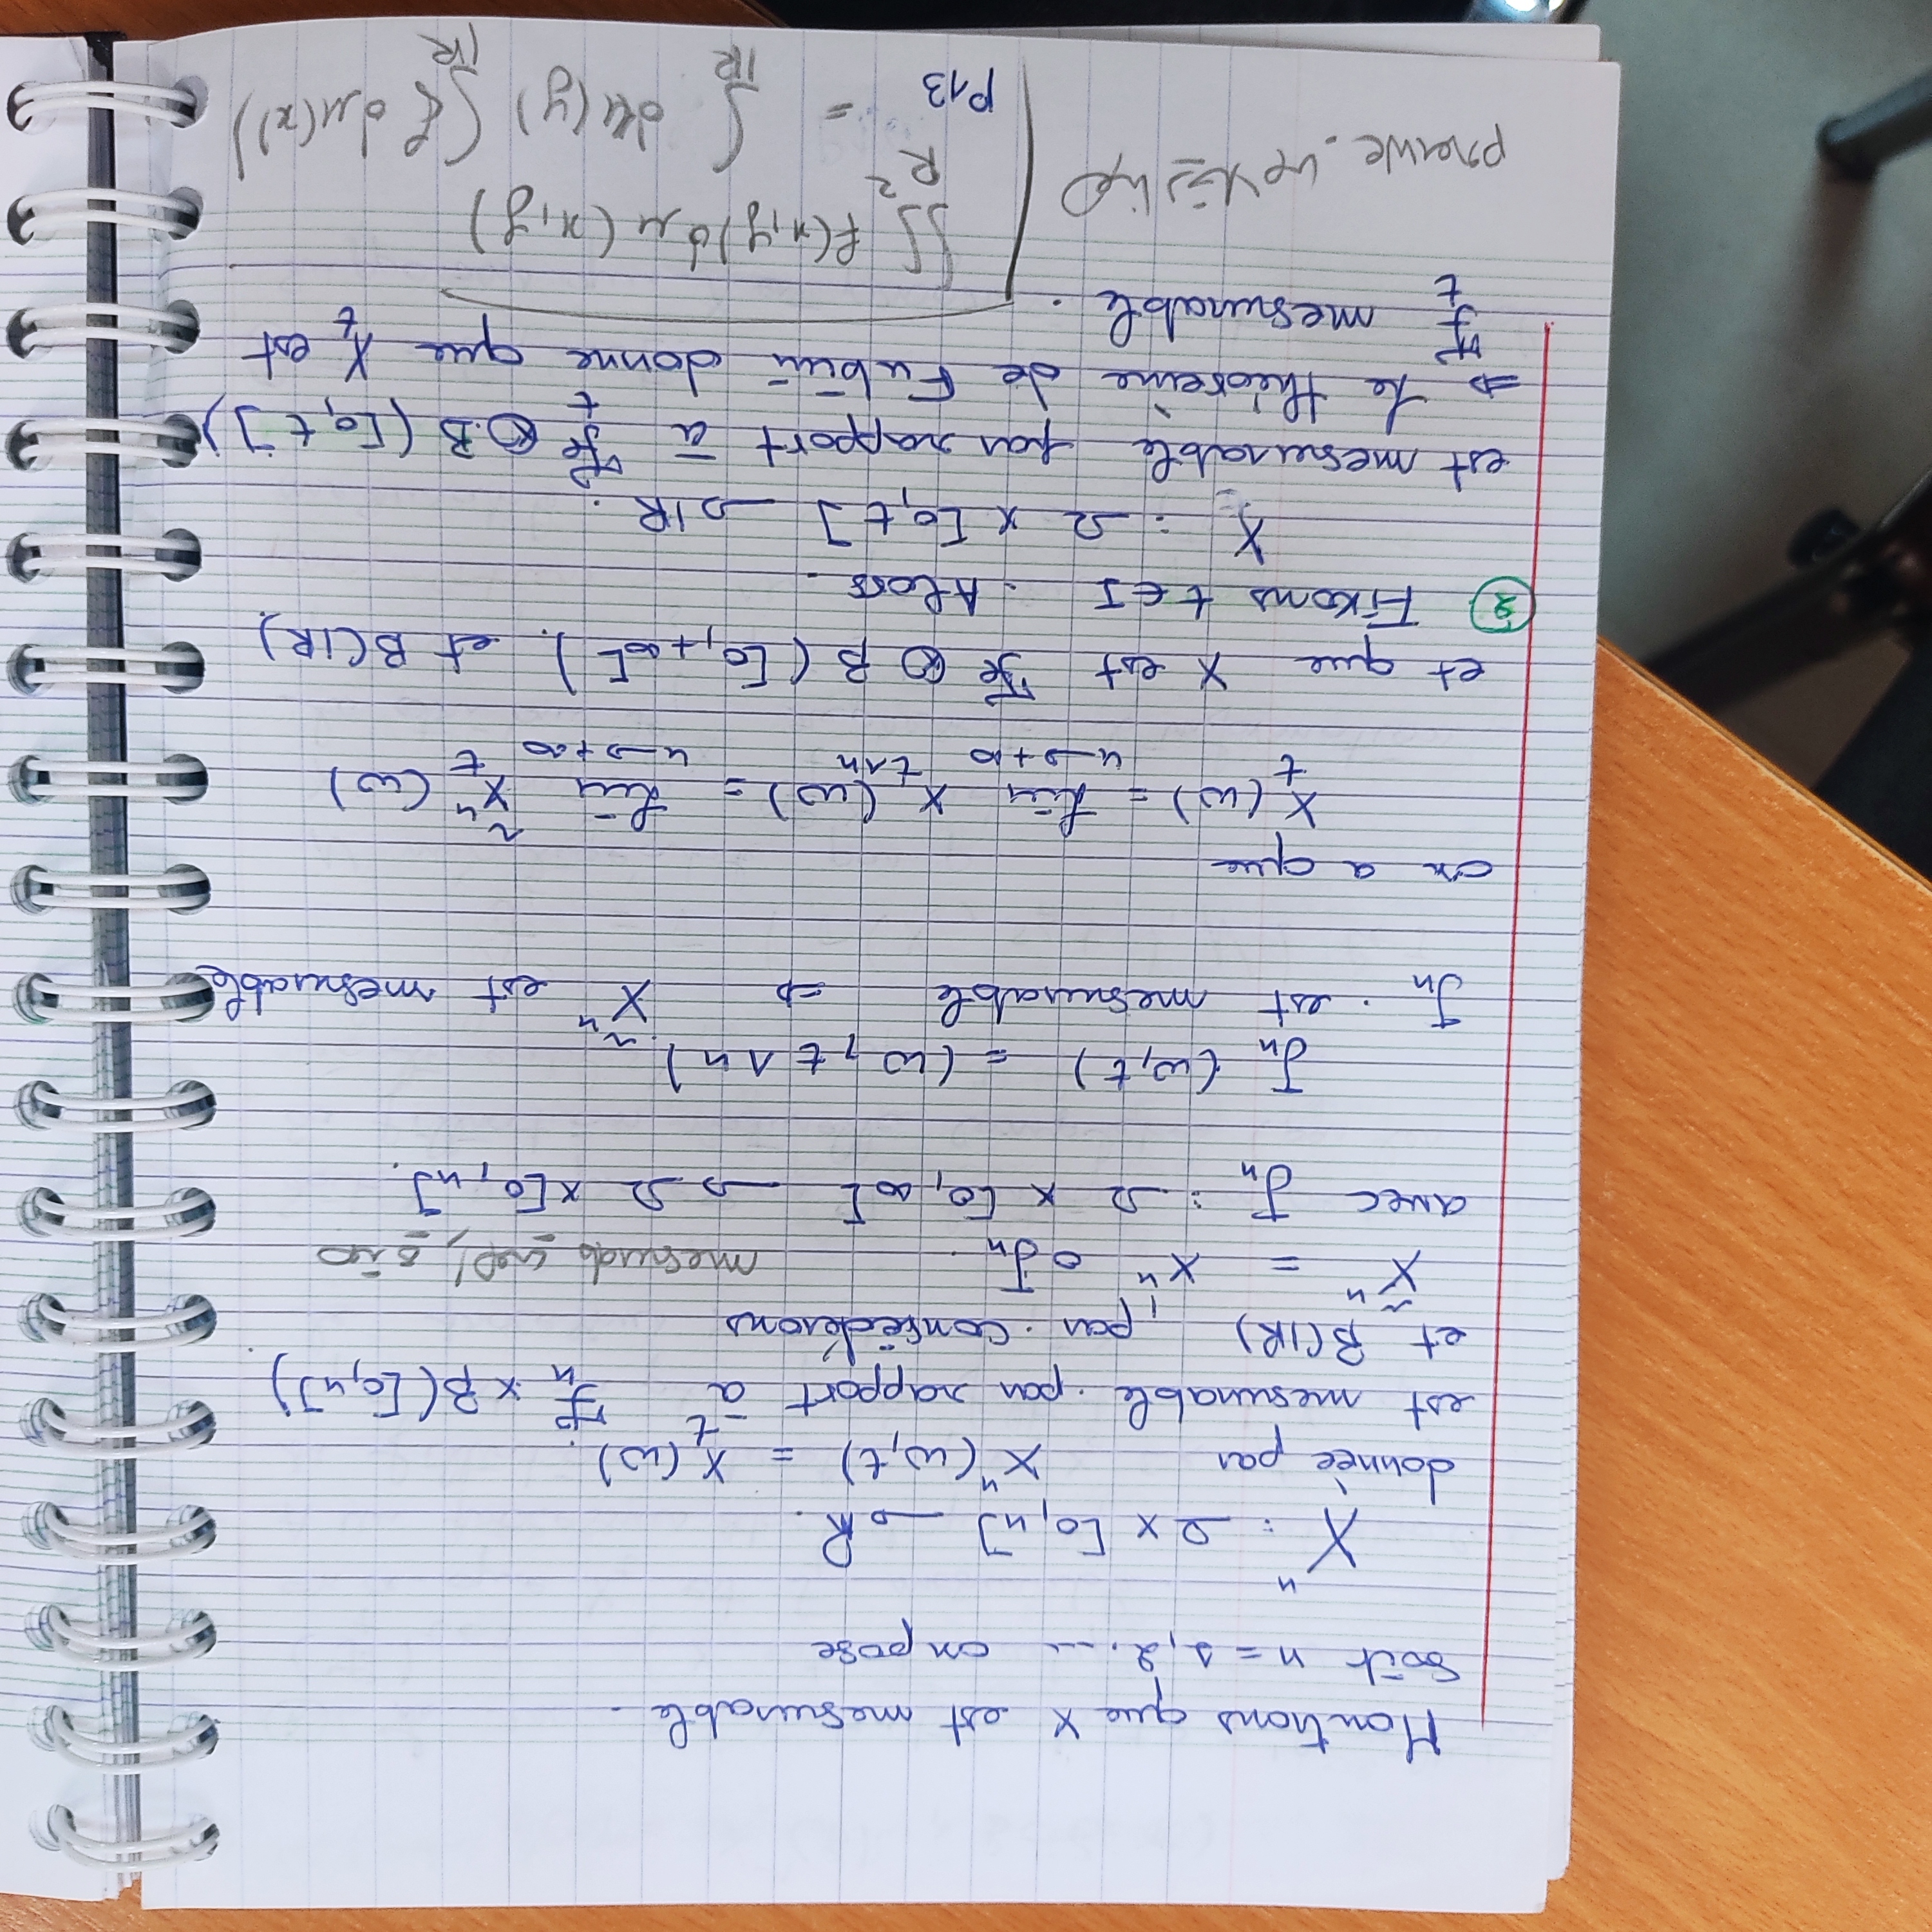 Montrons que X est mesurable.
Soit n = 1, 2, ... on pose
Xⁿ : Ω × [0, n] → R.
donnée par Xⁿ(ω, t) = X_t(ω).
est mesurable par rapport à ℱ_n × B([0, n])
et B(IR), par considérons
X̃ⁿ = Xⁿ ∘ J_n
avec J_n : Ω × [0, ∞[ → Ω × [0, n].
J_n (ω, t) = (ω, t ∧ n)
J_n est mesurable ⇒ X̃ⁿ est mesurable
on a que
X_t(ω) = lim_{n→+∞} X_{t∧n}(ω) = lim_{n→+∞} X̃ⁿ_t(ω)
et que X est ℱ ⊗ B([0, +∞[). et B(IR).
② Fixons t ∈ I. Alors.
X : Ω × [0, t] → IR.
est mesurable par rapport à ℱ_t ⊗ B([0, t])
⇒ Le théorème de Fubini donne que X_t est
ℱ_t mesurable.
∬_{R²} f(x,y) dμ(x,y)
preuve.
P13 = ∫_{IR} dμ(y) ∫_{IR} f dμ(x))